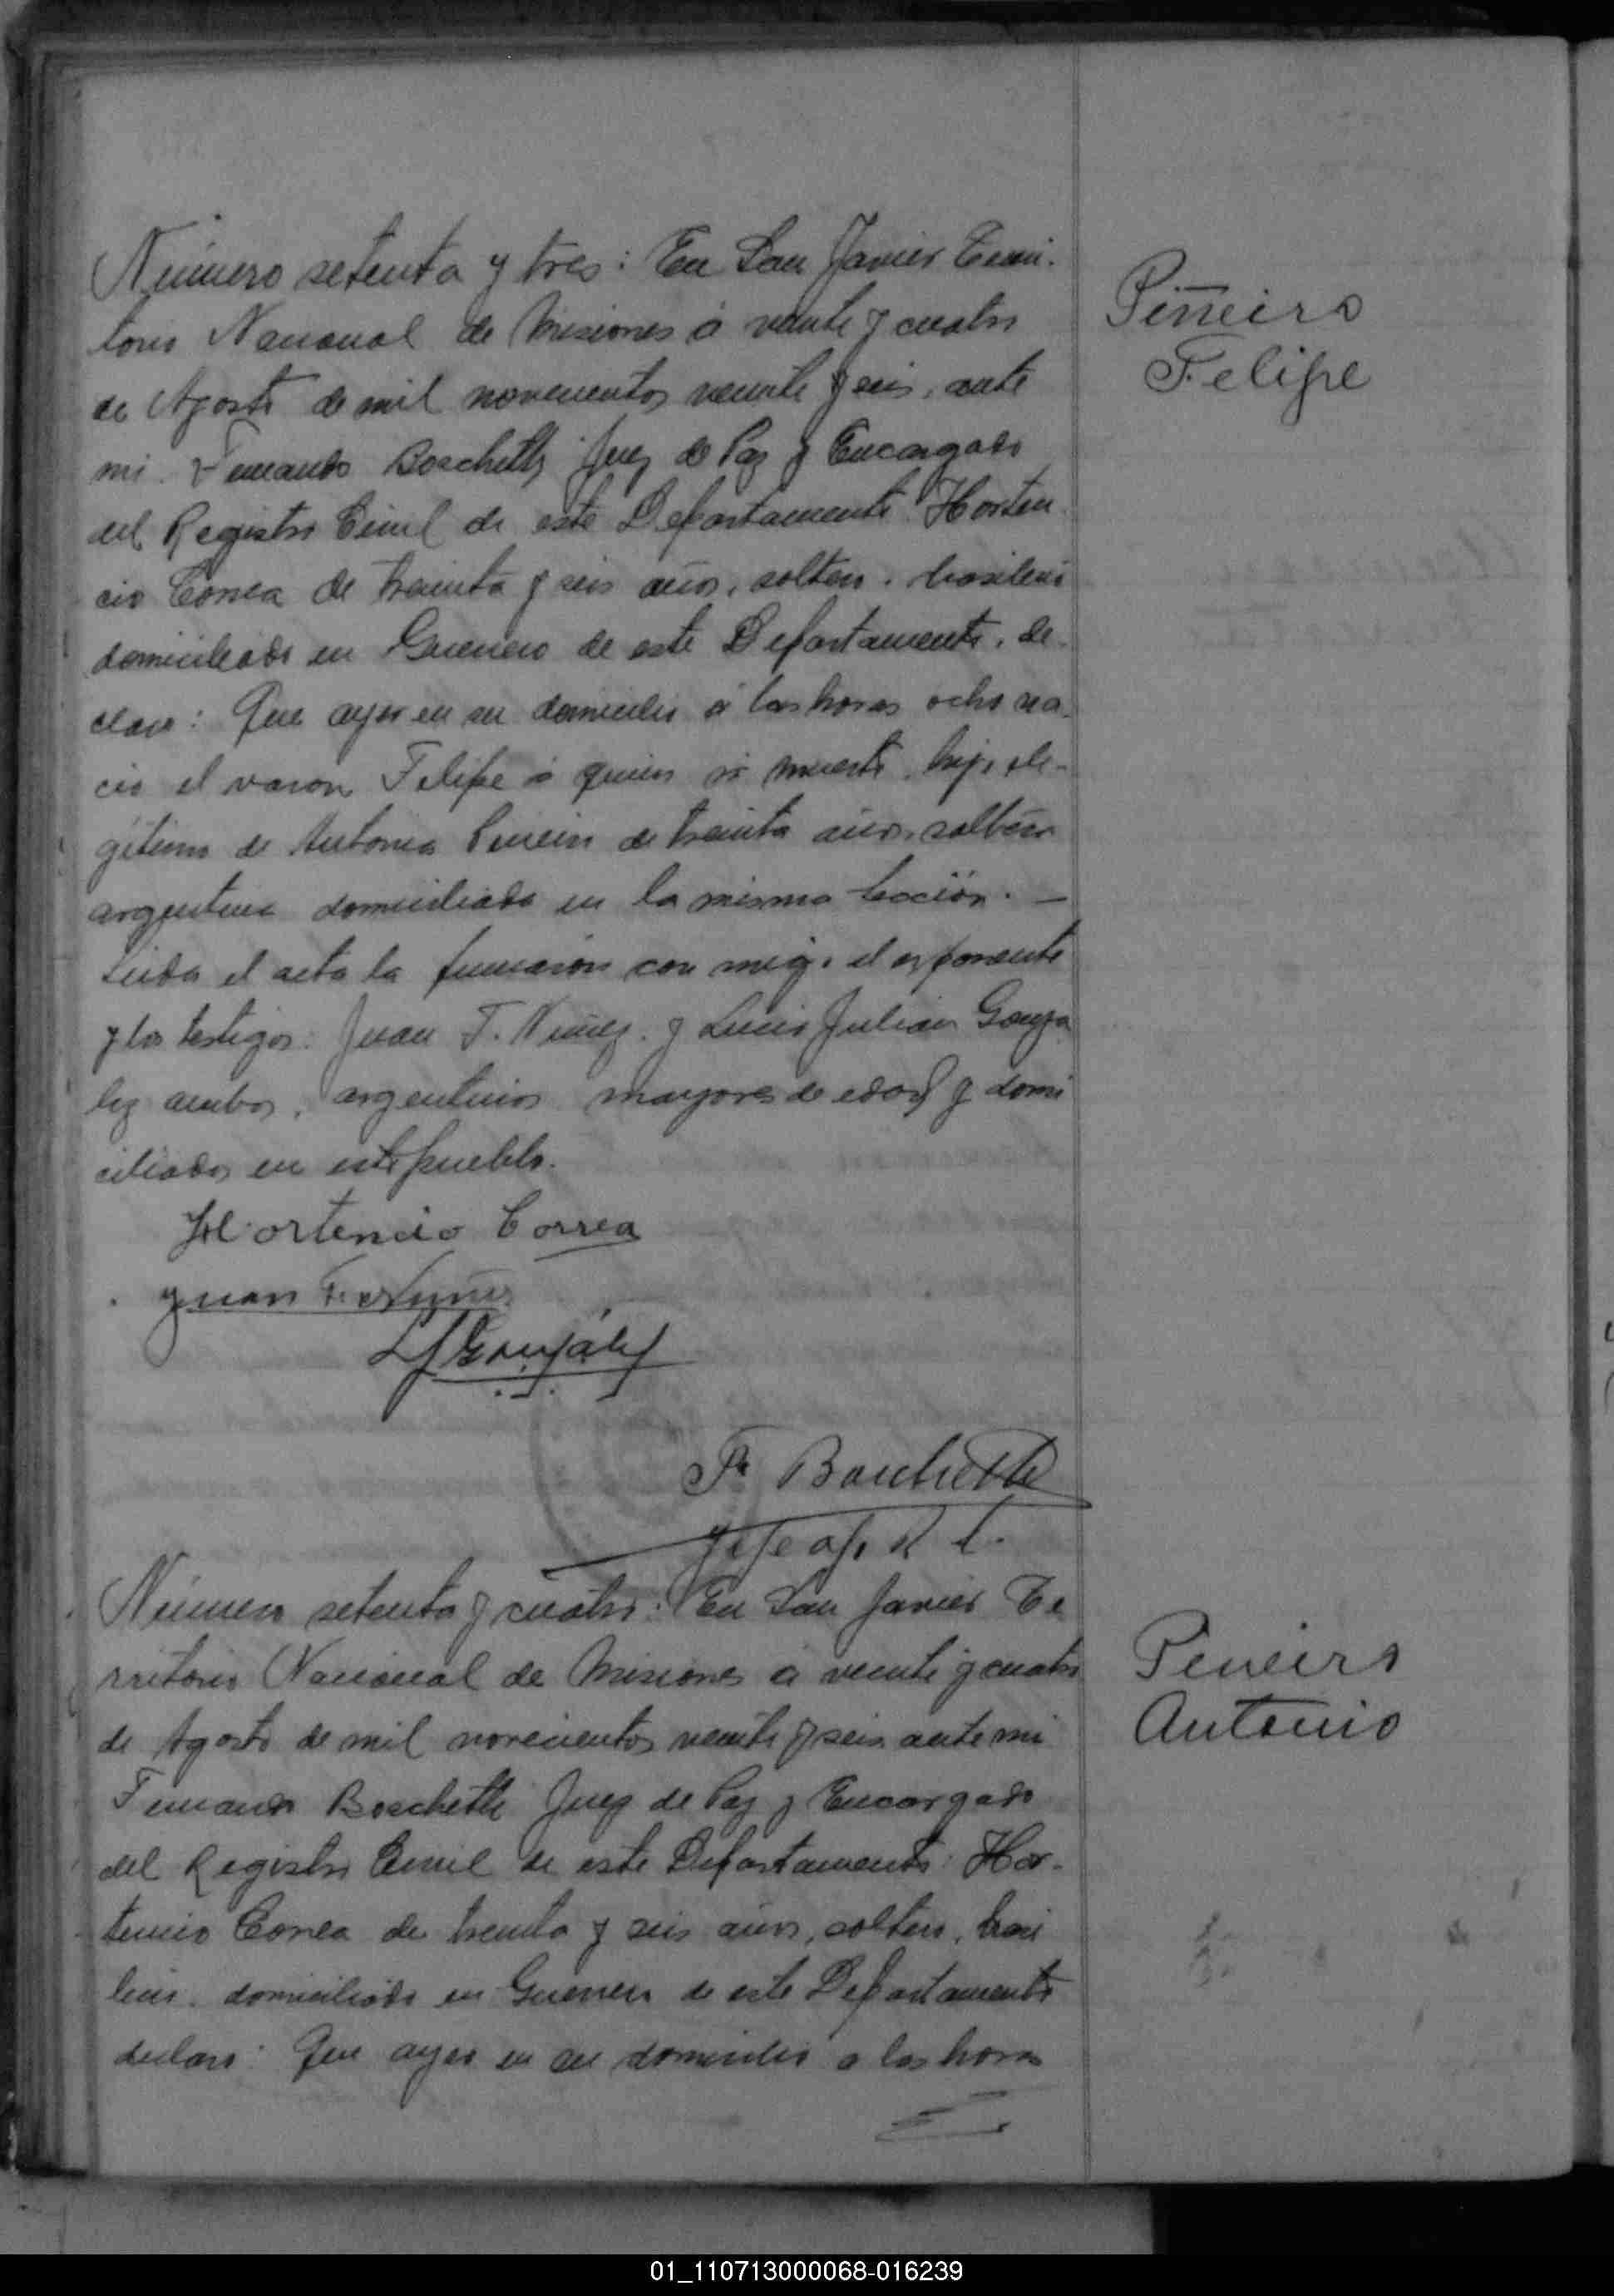 Número setenta y tres: En San Javier Terri-
torio Nacional de Misiones á veinte y cuatro
de Agosto de mil novecientos veinte y seis, ante
mi Fernando Boschetti Juez de Paz y Encargado
del Registro Civil de este Departamento Horten
cio Correa de treinta y seis años, soltero, brasilero
domiciliado en Guerrero de este Departamento, de-
claro: Que ayer en su domicilio á las horas ocho na-
ció el varon Felipe á quien ví muerto, hijo ile-
gítimo de Antonia Pineiro de treinta años, soltera
argentina domiciliada en la misma Sección. —
Leida el acta la firmaron con migo el exponente
y los testigos: Juan F. Nuñez y Luis Julian Gonza
lez ambos, argentinos mayores de edad y domi
ciliados en este pueblo.
Hortencio Correa
Juan F. Nuñez
LJGonzález
F. Boschetti
Jefe of. R C.
Piñeiro
Felipe
Número setenta y cuatro: En San Javier Te
rritorio Nacional de Misiones á veinte y cuatro
de Agosto de mil novecientos veinte y seis ante mi
Fernando Boschetti Juez de Paz y Encargado
del Registro Civil de este Departamento: Hor-
tencio Correa de treinta y seis años, soltero, brasi
lero, domiciliado en Guerrero de este Departamento
declaro: Que ayer en su domicilio a las horas
Pineiro
Antonio
01_110713000068-016239